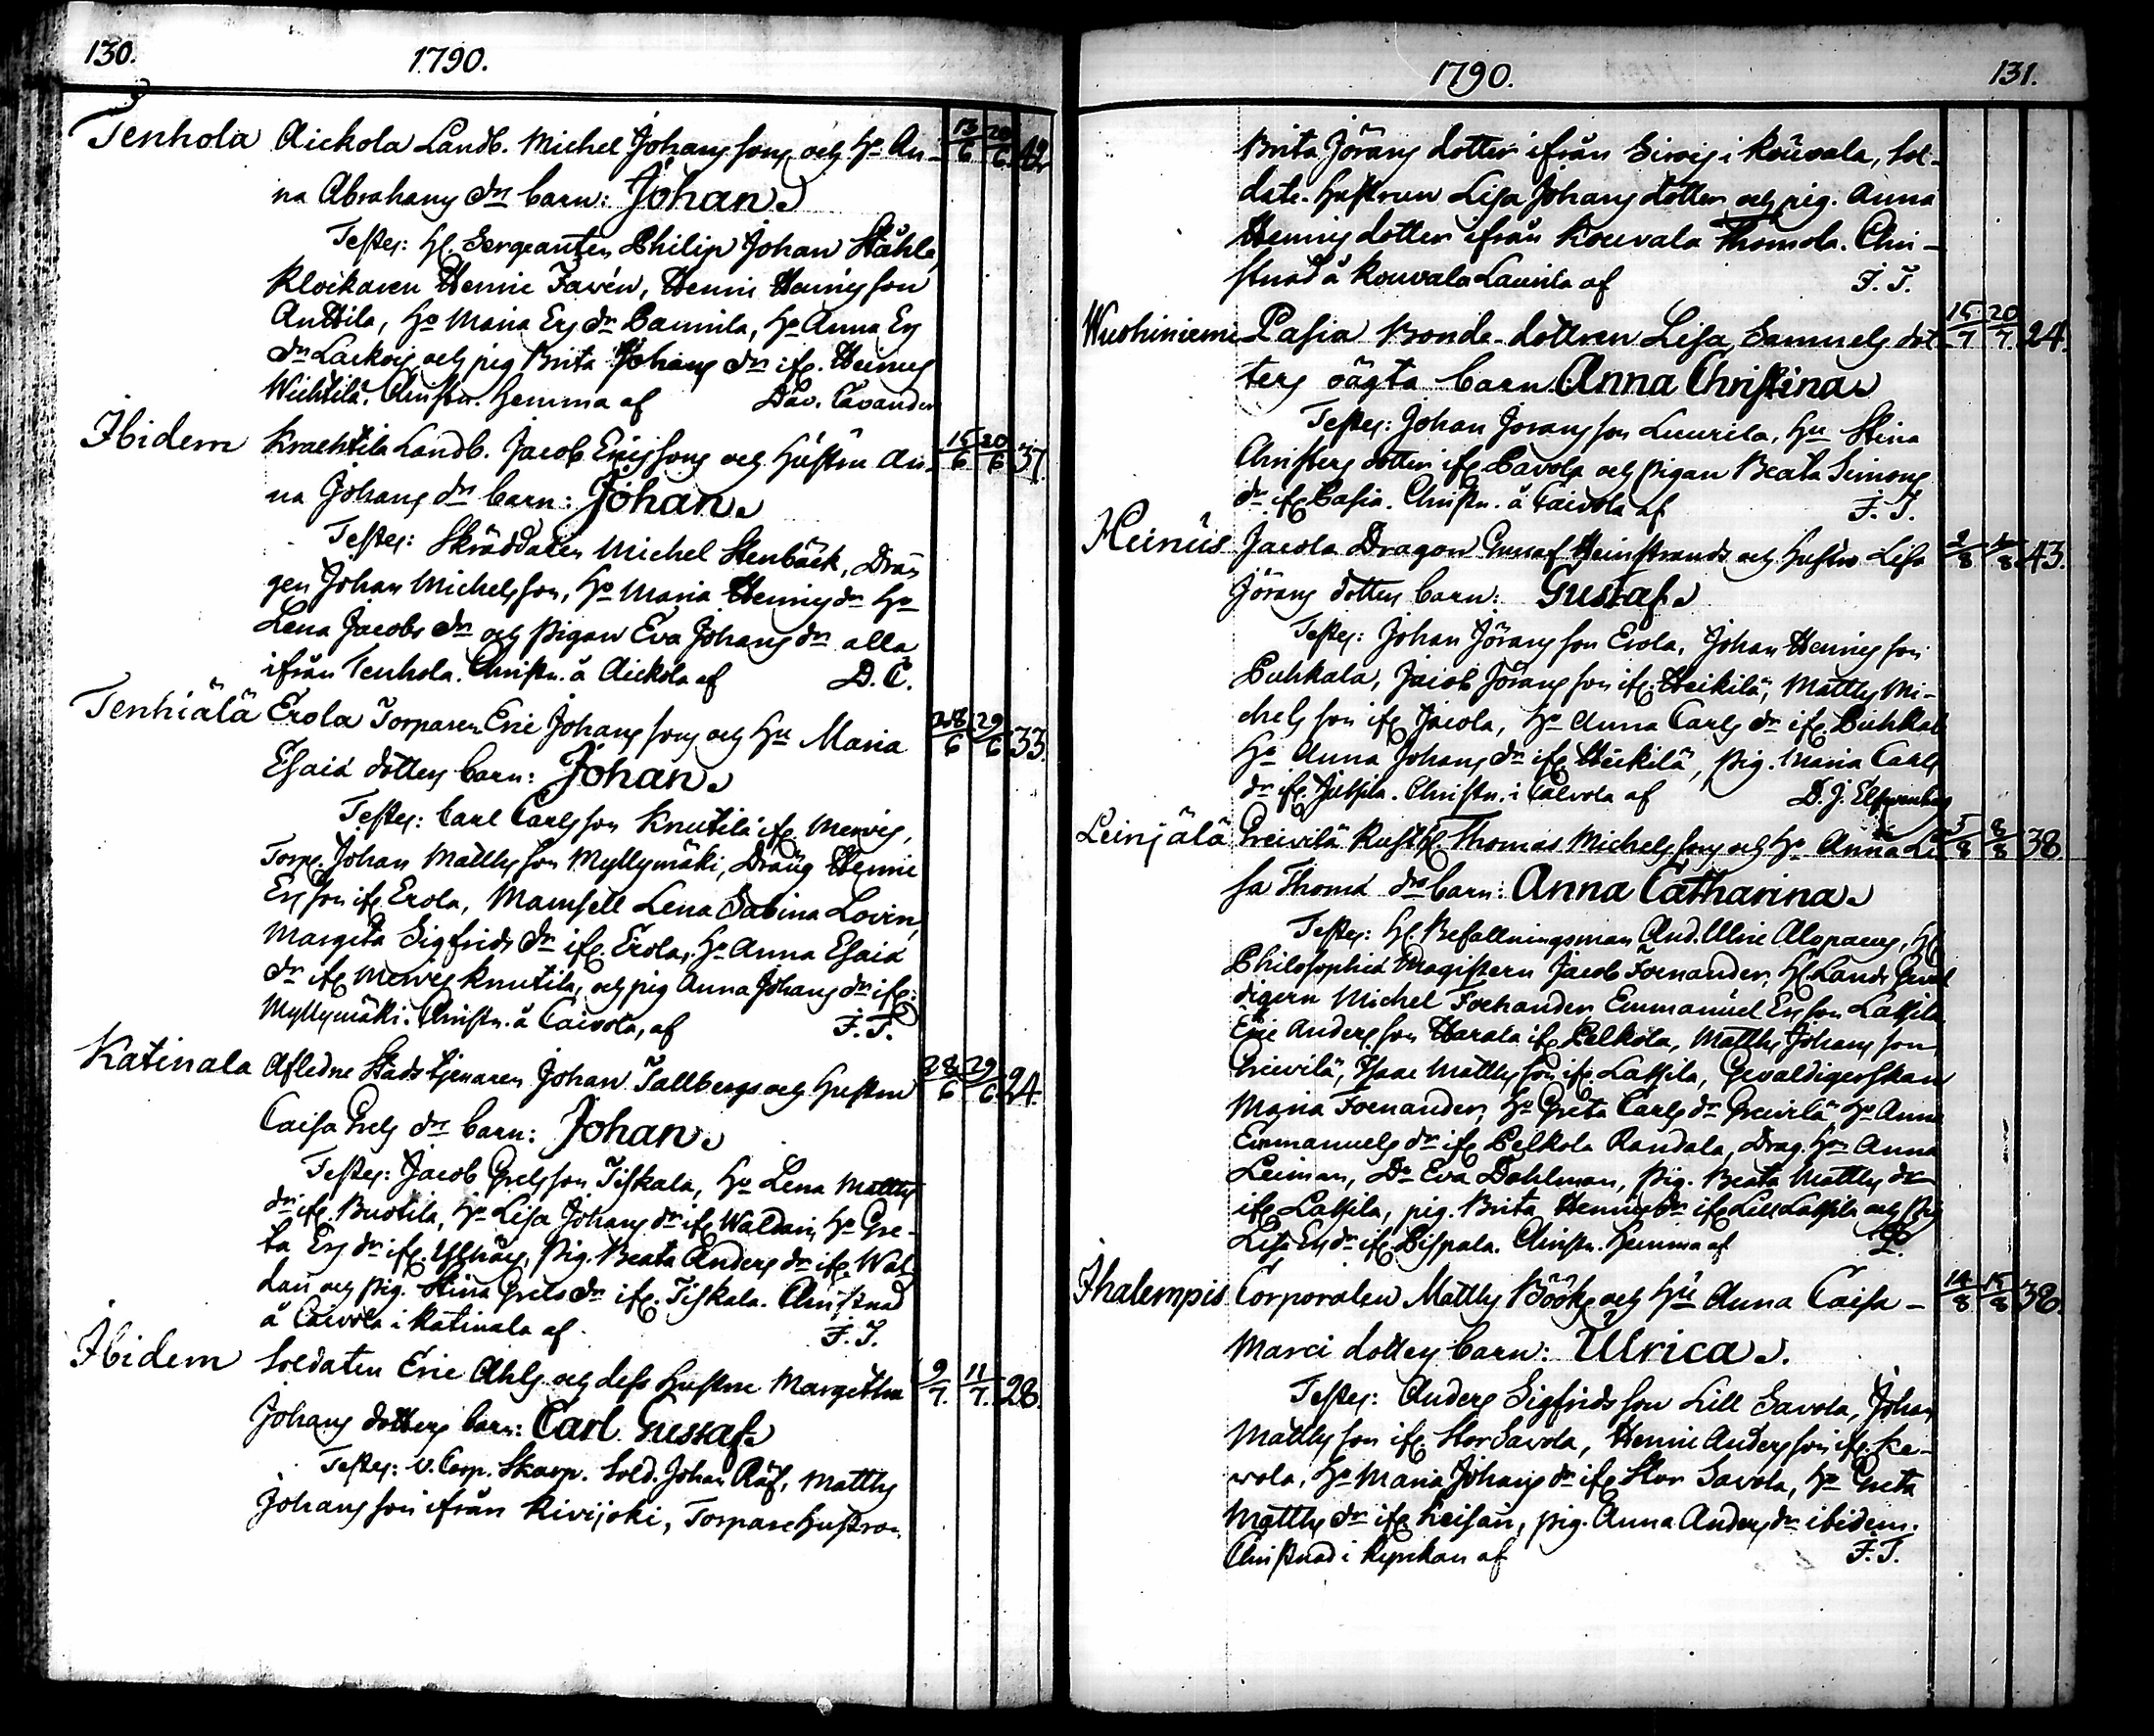 130. 1790.
Tenhola Aickola Landb. Michel Johans sons och Ho An- 13/6 20/6 42
na Abrahams dr barn: Johan.
Testes: Hl. Sergeanten Philip Johan Ståhle,
Klockaren Henric Favén, Henric Henrics son
Anttila, Ho Maria Ers dr Laurila, Ho Anna Ers
dr Lackois och pig Brita Johans dr ifr. Heinus
Wichtilä. Christn. hemma af Dav. Cavander
Ibidem Krachtila Landb. Jacob Erics sons och Hustru An- 15/6 20/6 37.
na Johans dr barn: Johan.
Testes: Skräddaren Michel Stenbäck, Drän
gen Johan Michels son, Ho Maria Henrics dr Ho
Lena Jacobs dr och pigan Eva Johans dr alla
ifrån Tenhola. Christn. å Aickola af D. C.
Tenhiälä Erola Torparen Eric Johans sons och Hu Maria 28/6 29/6 33.
Esaiæ dotters barn: Johan.
Testes: Carl Carls son Knutila ifr. Merves,
Torpr. Johan Matths son Myllymäki, Dräng Henric
Ers son ifr Erola, Mamsell Lena Sabina Lovin,
Margeta Sigfrids dr ifr. Erola, Ho Anna Esaiæ
dr ifr Merves Knutila, och pig Anna Johans dr ifr:
Myllymäki. Christn. å Caivola, af F. T.
Katinala Afledne Stads tjenaren Johan Tallbergs och Hustru 28/6 29/6 24.
Caisa Grels dr barn: Johan.
Testes: Jacob Grels son Tiskala, Ho Lena Matths
dr ifr. Buotila, Ho Lisa Johans dr ifr Waldari, Ho Gre-
ta Ers dr ifr. , Pig. Beata Anders dr ifr. Wal-
dari och pig. Stina Grels dr ifr. Tiskala. Christnad
å Caivola i Katinala af F. T.
Ibidem Soldaten Eric Ahls och dess hustru Margetha 9/7. 11/7. 28.
Johans dotters barn: Carl Gustaf.
Testes: v. Corp. Skarp. Sold. Johan Räf, Matths
Johans son ifrån Kivijoki, Torpare hustron
1790. 131.
Brita Jörans dotter ifrån Sirois i Kouvala, Sol-
date-hustrun Lisa Johans dotter och pig. Anna
Henrics dotter ifrån Kouvala Thomola. Chri-
stnad å Kouvala Laurila af F. T.
Wuohiniemi Pasia Bonde-dottren Lisa Samuels dot- 15/7 20/7. 24.
ters oägta barn: Anna Christina.
Testes: Johan Jorans son Luurila, Hu Stina
Christers dotter ifr Cavola och pigan Beata Simons
dr ifr Pasia. Christn. å Caivola af F. T.
Heinus Jacola Dragon Gustaf Heinstrands och hustru Lisa 2/8 /8 43.
Jörans dotters barn: Gustaf.
Testes: Johan Jörans son Erola, Johan Henrics son
Puhkala, Jacob Jörans son ifr: Heikilä, Matths Mi-
chels son ifr Jacola, Ho Anna Carls dr ifr Puhkala
Ho Anna Johans dr ifr Heikilä, pig. Maria Carls
dr ifr. Jutila. Christn. i Calvola af D. J. Elfwenberg
Leinjälä Greivilä Rusth. Thomas Michels sons och Ho Anna Li- 5/8 8/8 38.
sa Thomæ drs barn: Anna Catharina.
Testes: Hl. Befallningsman And. Ulric Alopaeus, Hl
Philosophiæ Magistern Jacob Foenander, Hl. Lands Geval
digern Michel Foenander Emmanuel Ers son Lassila
Eric Anders son Harala ifr Pelkola, Matths Johans son
Greivilä, Isaac Matths son ifr. Lassila, Gevaldigerskan
Maria Foenander, Ho Greta Carls dr Greivilä Ho Anna
Emmanuels dr ifr Pelkola Randala, Drag. Ho Anna
Leiman, Do Eva Dahlman, Pig. Beata Matths dr
ifr Lassila, pig. Brita Henrics dr ifr Lill Lassila och Pig
Lisa Ers dr ifr Pispala. Christn. hemma af
Ihalempis Corporalen Matths Bööks och Hu Anna Caisa - 14/8 15/8 38.
Marci dotters barn: Ulrica.
Testes: Anders Sigfrids son Lill Savola, Johan
Matths son ifr. Stor Savola, Henric Anders son ifr. Ke-
vola, Ho Maria Johans dr ifr Stor Savola, Ho Greta
Matths dr ifr Keisari, pig. Anna Anders dr ibidem.
Christnad i kyrckan af F. T.